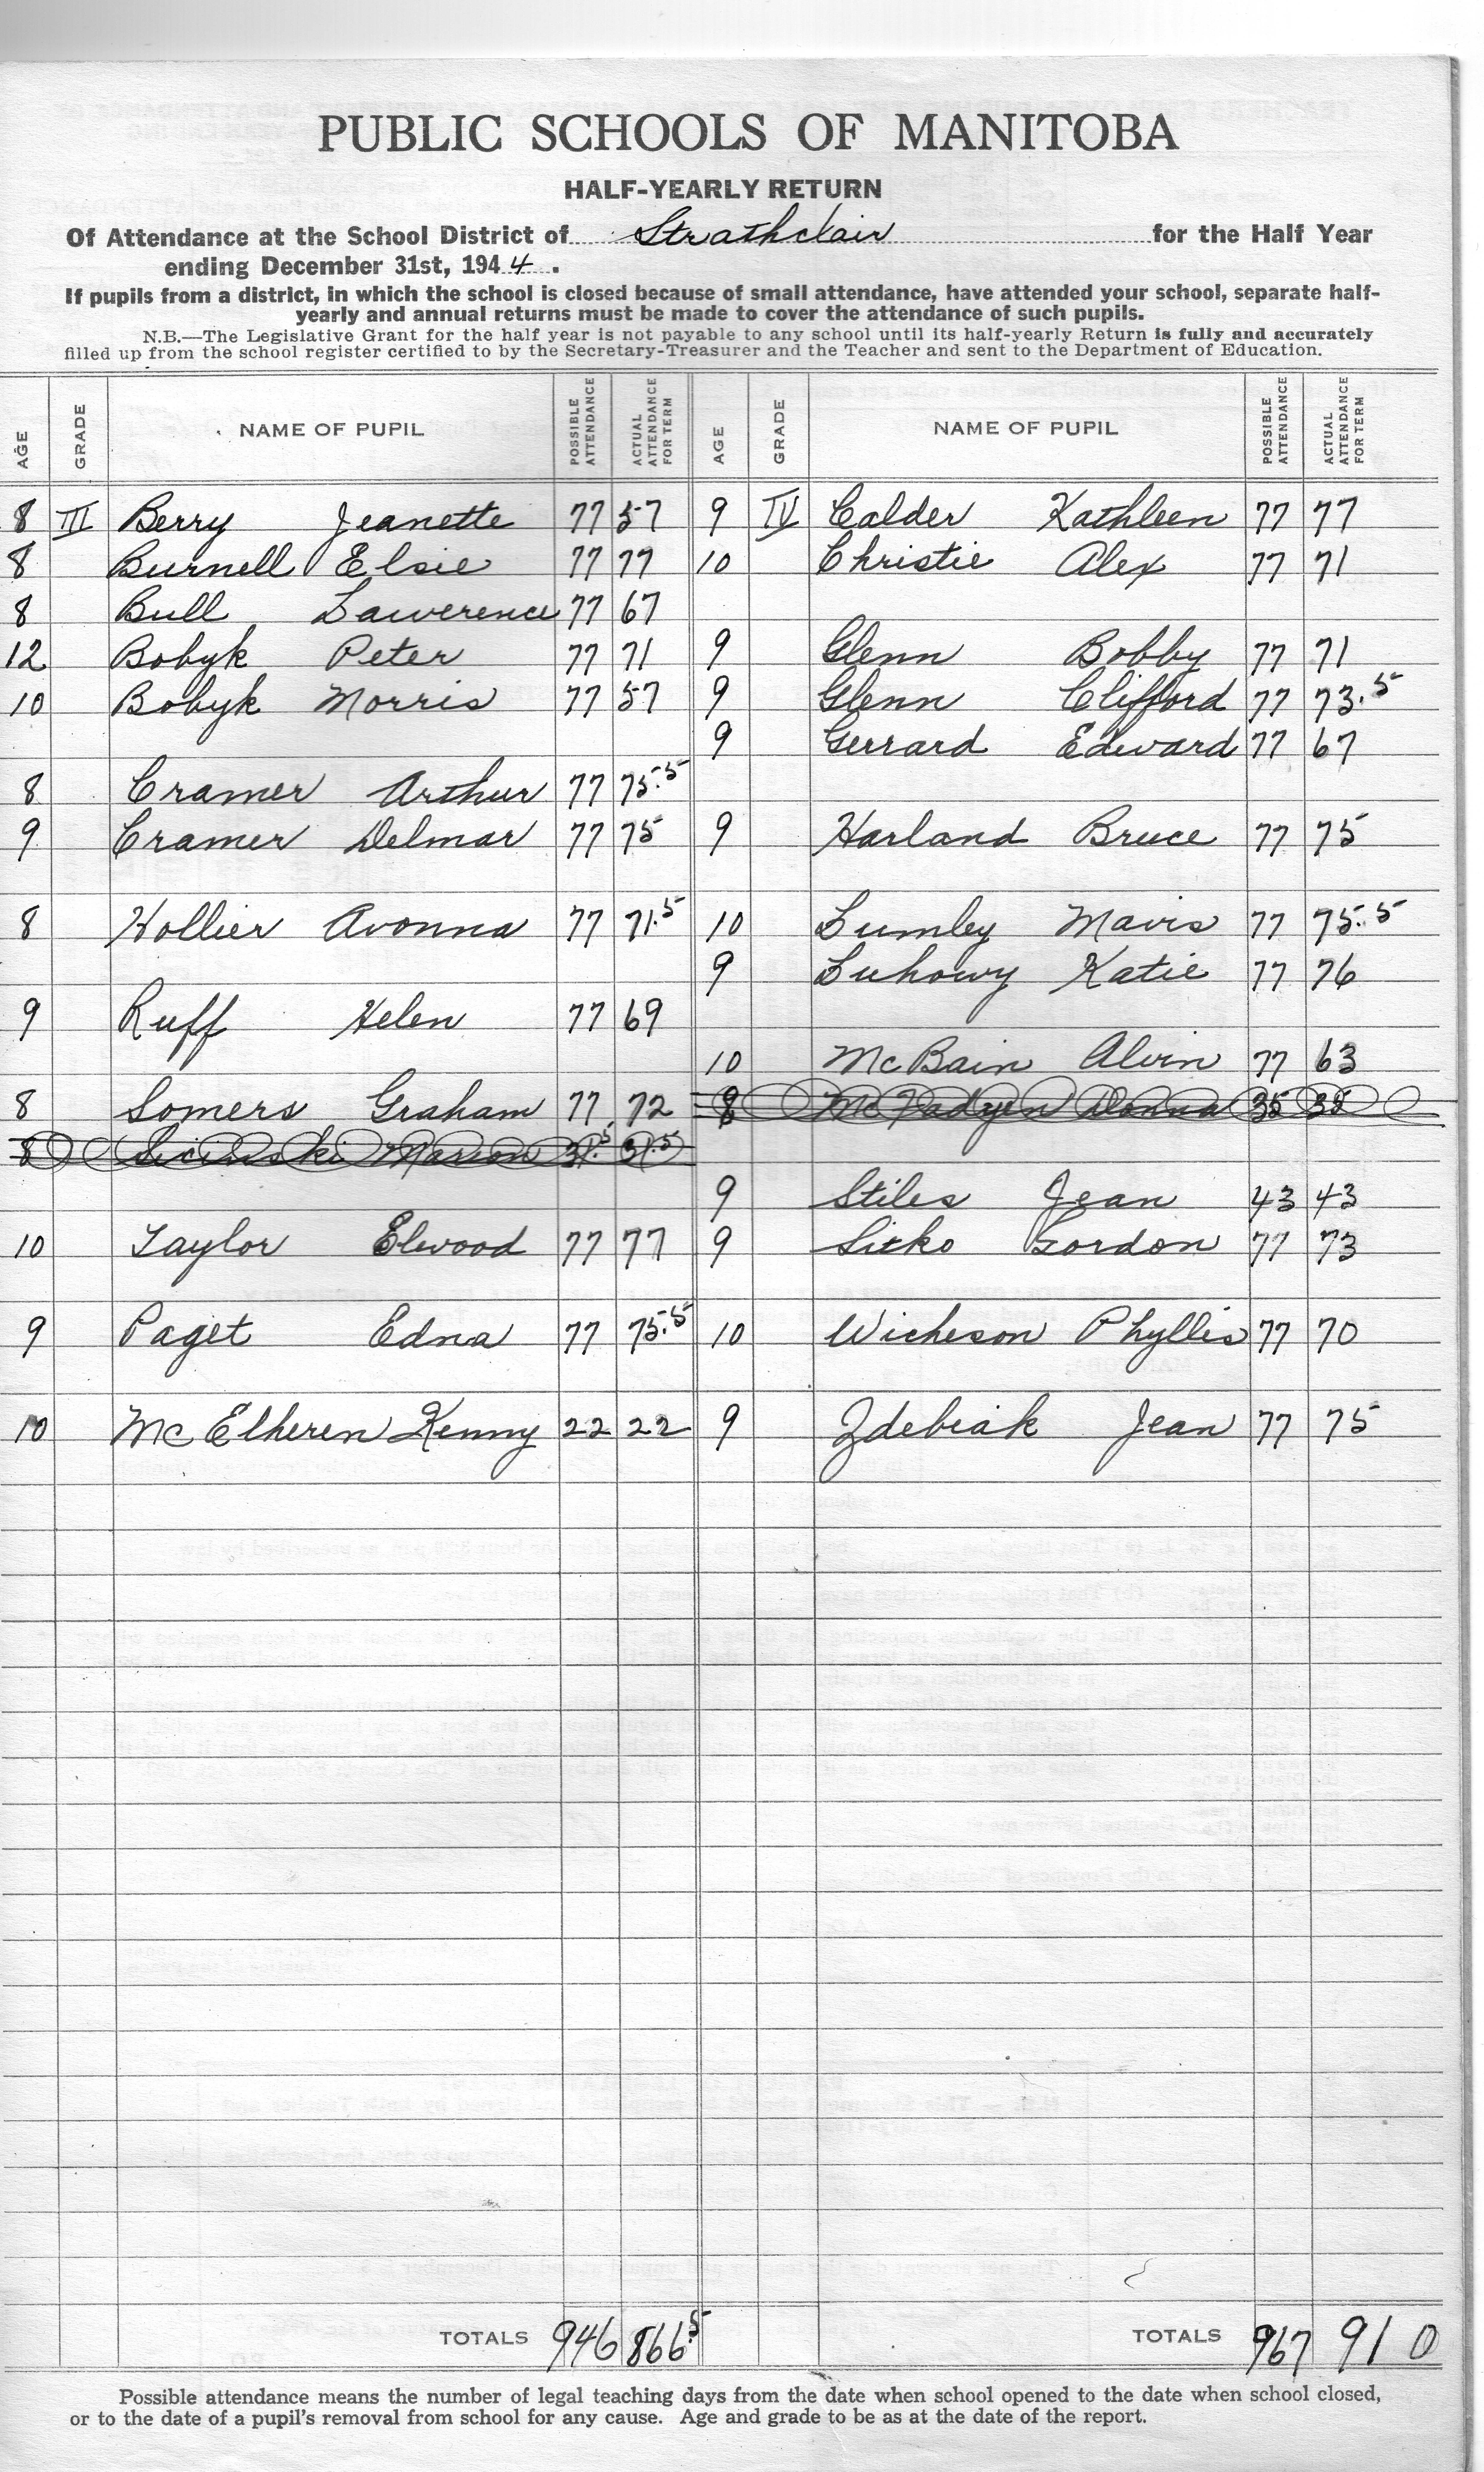 PUBLIC SCHOOLS OF MANITOBA
HALF-YEARLY RETURN
Of Attendance at the School District of Strathclair for the Half Year
ending December 31st, 1944.
If pupils from a district, in which the school is closed because of small attendance, have attended your school, separate half-
yearly and annual returns must be made to cover the attendance of such pupils.
N.B.—The Legislative Grant for the half year is not payable to any school until its half-yearly Return is fully and accurately
filled up from the school register certified to by the Secretary-Treasurer and the Teacher and sent to the Department of Education.
AGE GRADE NAME OF PUPIL POSSIBLE ATTENDANCE ACTUAL ATTENDANCE FOR TERM
8 III Berry Jeanette 77 57
8 Burnell Elsie 77 77
8 Bull Lawerence 77 67
12 Bobyk Peter 77 71
10 Bobyk Morris 77 57
8 Cramer Arthur 77 75.5
9 Cramer Delmar 77 75
8 Hollier Avonna 77 71.5
9 Ruff Helen 77 69
8 Somers Graham 77 72
8 Sicinski Marion 31.5 31.5
10 Taylor Elwood 77 77
9 Paget Edna 77 75.5
10 McElheren Kenny 22 22
TOTALS 946 866.5
AGE GRADE NAME OF PUPIL POSSIBLE ATTENDANCE ACTUAL ATTENDANCE FOR TERM
9 IV Calder Kathleen 77 77
10 Christie Alex 77 71
9 Glenn Bobby 77 71
9 Glenn Clifford 77 73.5
9 Gerrard Edward 77 67
9 Harland Bruce 77 75
10 Lumley Mavis 77 75.5
9 Luhowy Katie 77 76
10 McBain Alvin 77 63
8 McFadyen Donna 35
9 Stiles Jean 43 43
9 Sitko Gordon 77 73
10 Wicheson Phyllis 77 70
9 Zdebiak Jean 77 75
TOTALS 967 910
Possible attendance means the number of legal teaching days from the date when school opened to the date when school closed,
or to the date of a pupil's removal from school for any cause. Age and grade to be as at the date of the report.